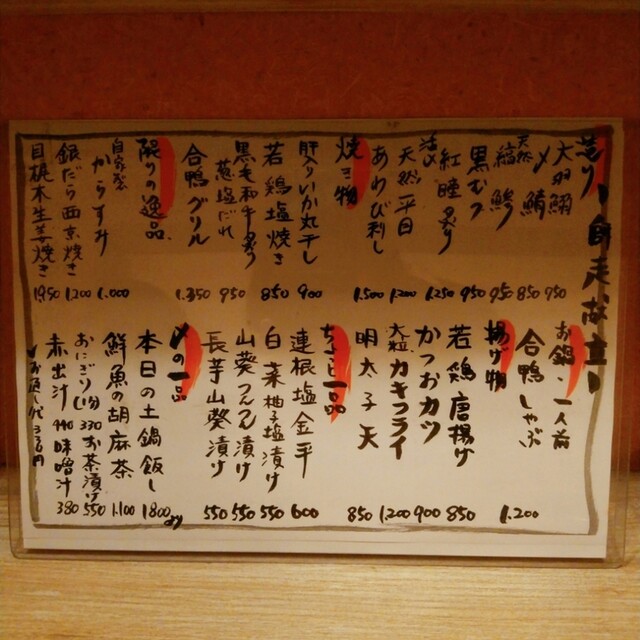 師走献立
造り
大羽鰯 950
〆鯖 850
天然縞鯵 950
黒むつ 950
紅瞳炙り 1.250
天然平目 1.200
あわび刺し 1.500
焼き物
肝入りいか丸干し 900
若鶏塩焼き 850
黒毛和牛炙り
葱塩だれ 950
合鴨グリル 1.350
限りの逸品
自家製からすみ 1.000
銀だら西京焼き 1.200
目梶木生姜焼き 1950
お鍋・一人前
合鴨しゃぶ 1.200
揚げ物
若鶏唐揚げ 850
かつおカツ 900
大粒カキフライ 1.200
明太子天 850
ちょっと一品
連根塩金平 600
白菜柚子塩漬け 550
山葵つんつん漬け 550
長芋山葵漬け 550
〆の一品
本日の土鍋飯し 1800より
鮮魚の胡麻茶 1.100
おにぎり(1ヶ) 330 お茶漬け 550
赤出汁 440 味噌汁 380
お通し代 330円